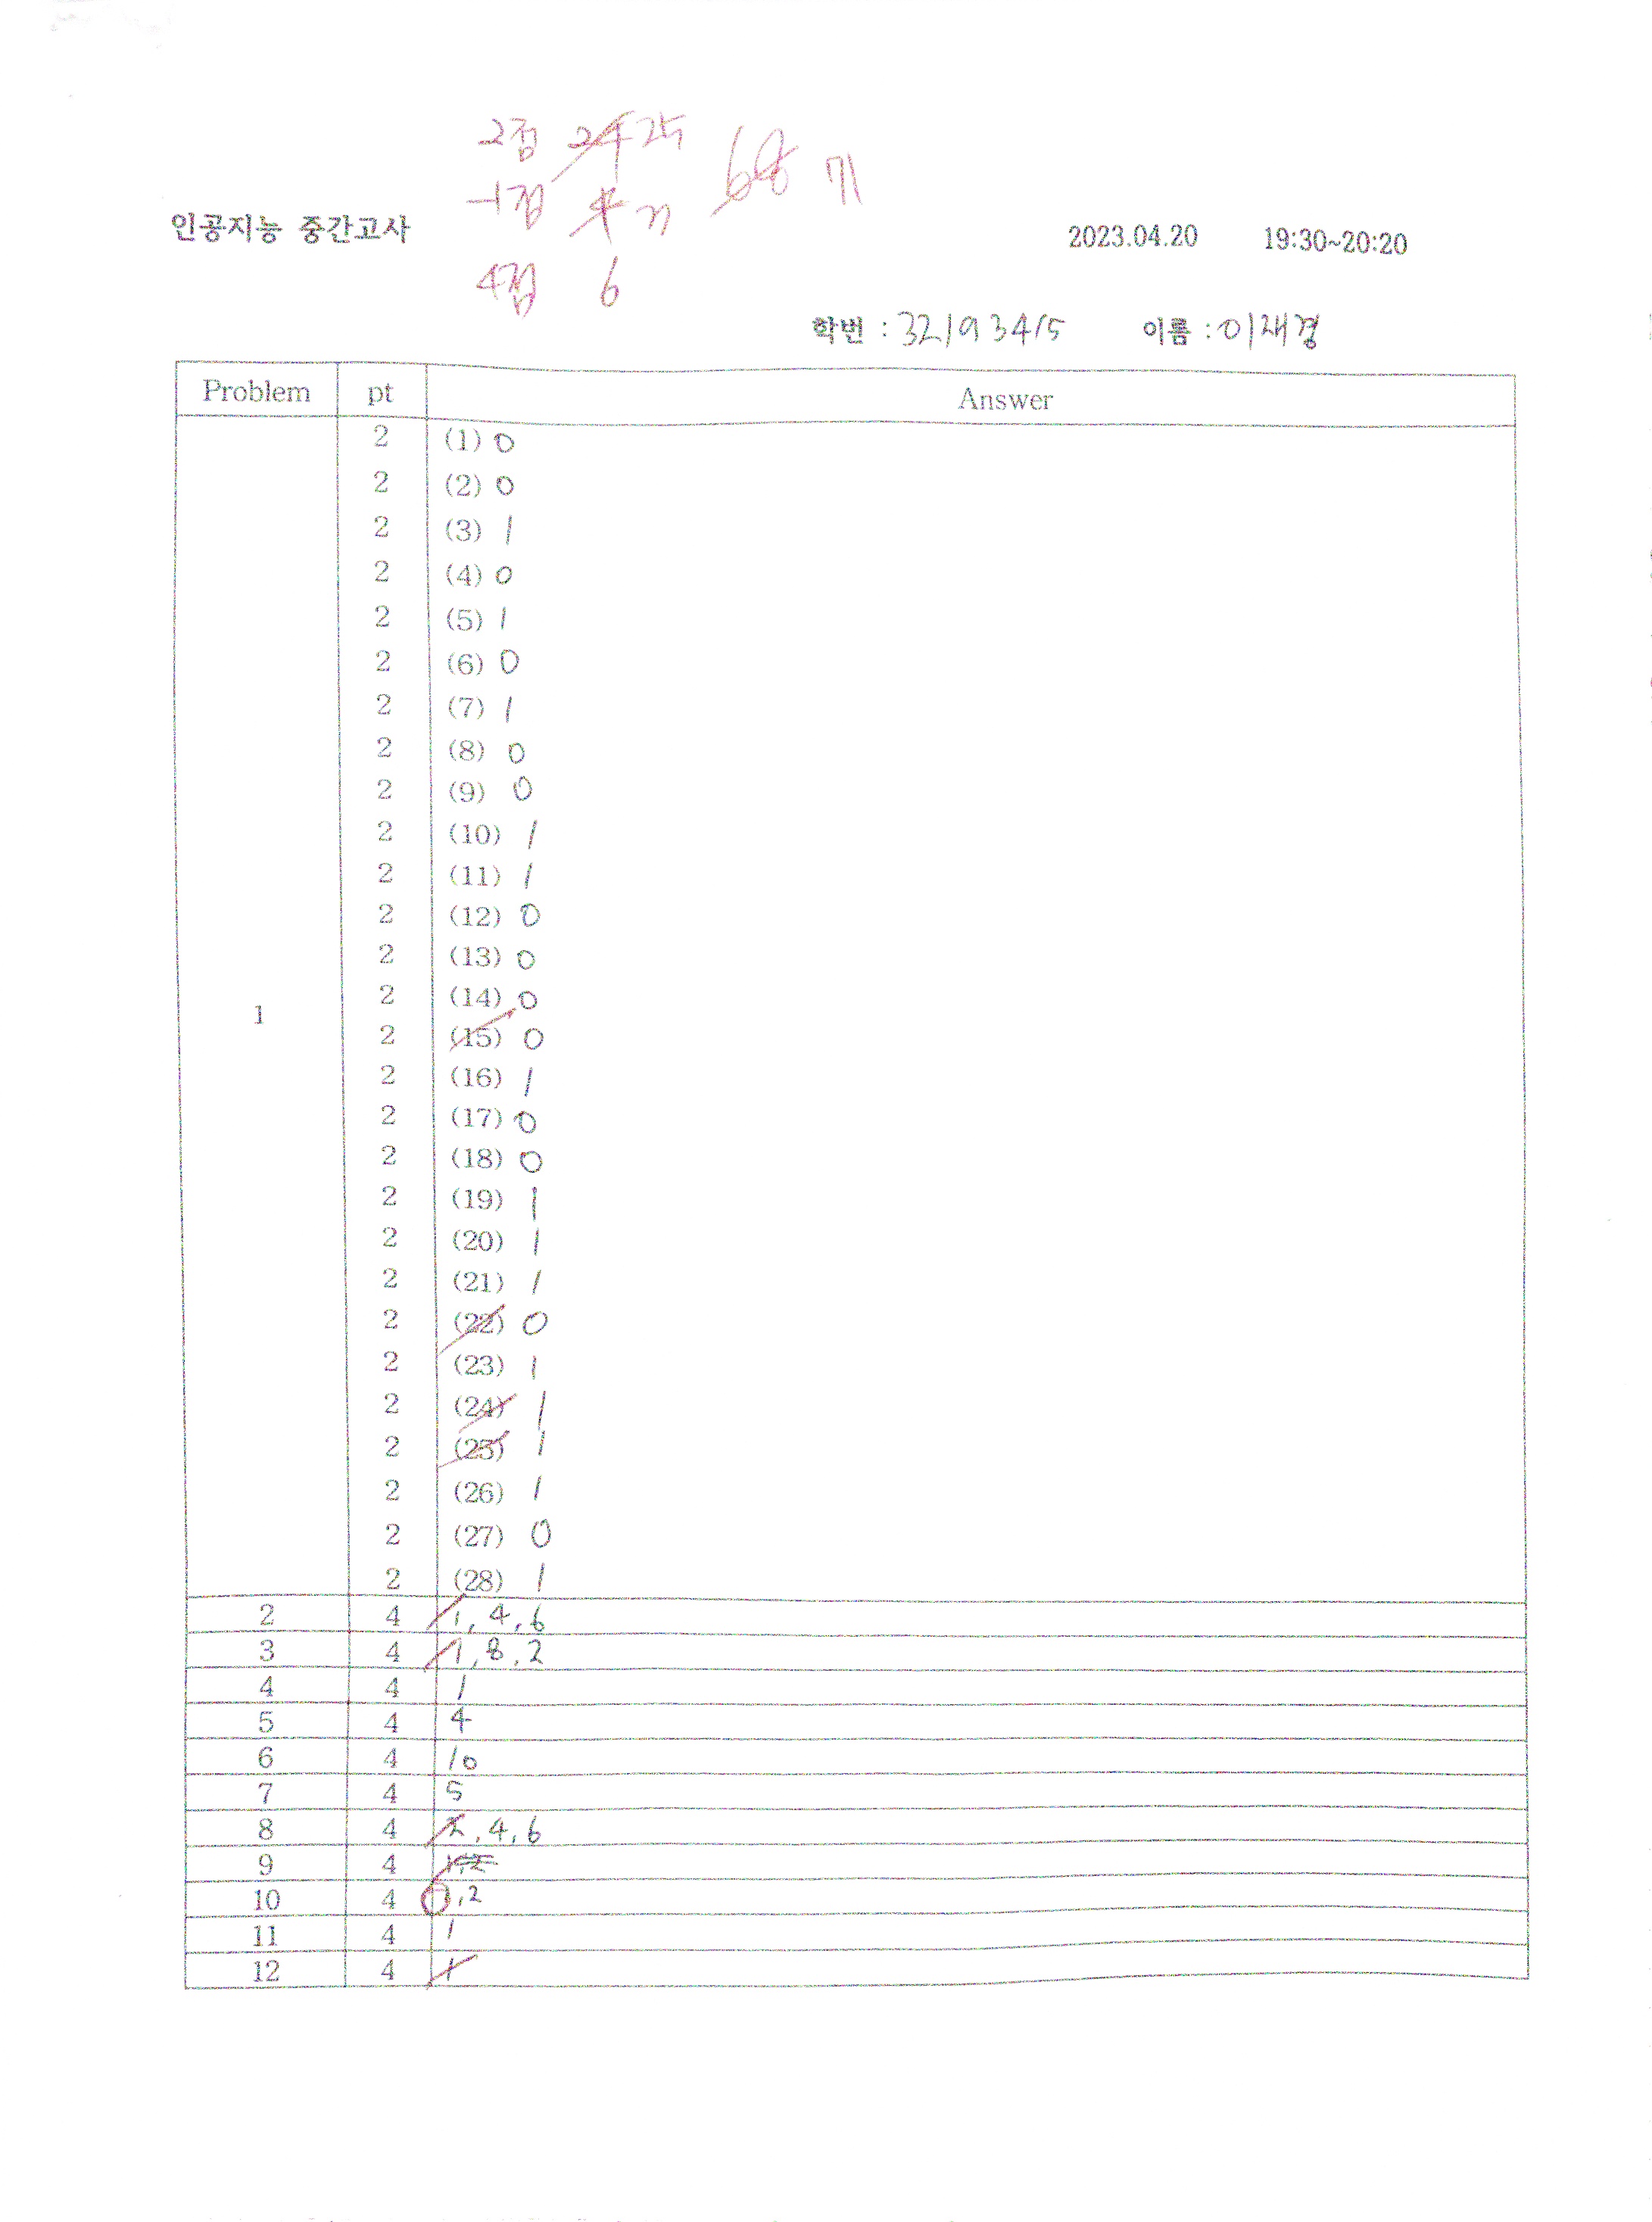 2점 24 25 68 71
-1점 4 3
4점 6
인공지능 중간고사 2023.04.20 19:30~20:20
학번 : 32193415 이름 : 이재경
Problem pt Answer
2 (1) 0
2 (2) 0
2 (3) 1
2 (4) 0
2 (5) 1
2 (6) 0
2 (7) 1
2 (8) 0
2 (9) 0
2 (10) 1
2 (11) 1
2 (12) 0
2 (13) 0
2 (14) 0
1
2 (15) 0
2 (16) 1
2 (17) 0
2 (18) 0
2 (19) 1
2 (20) 1
2 (21) 1
2 (22) 0
2 (23) 1
2 (24) 1
2 (25) 1
2 (26) 1
2 (27) 0
2 (28) 1
2 4 1, 4, 6
3 4 1, 8, 2
4 4 1
5 4 4
6 4 10
7 4 5
8 4 2, 4, 6
9 4
10 4 , 2
11 4 1
12 4 1